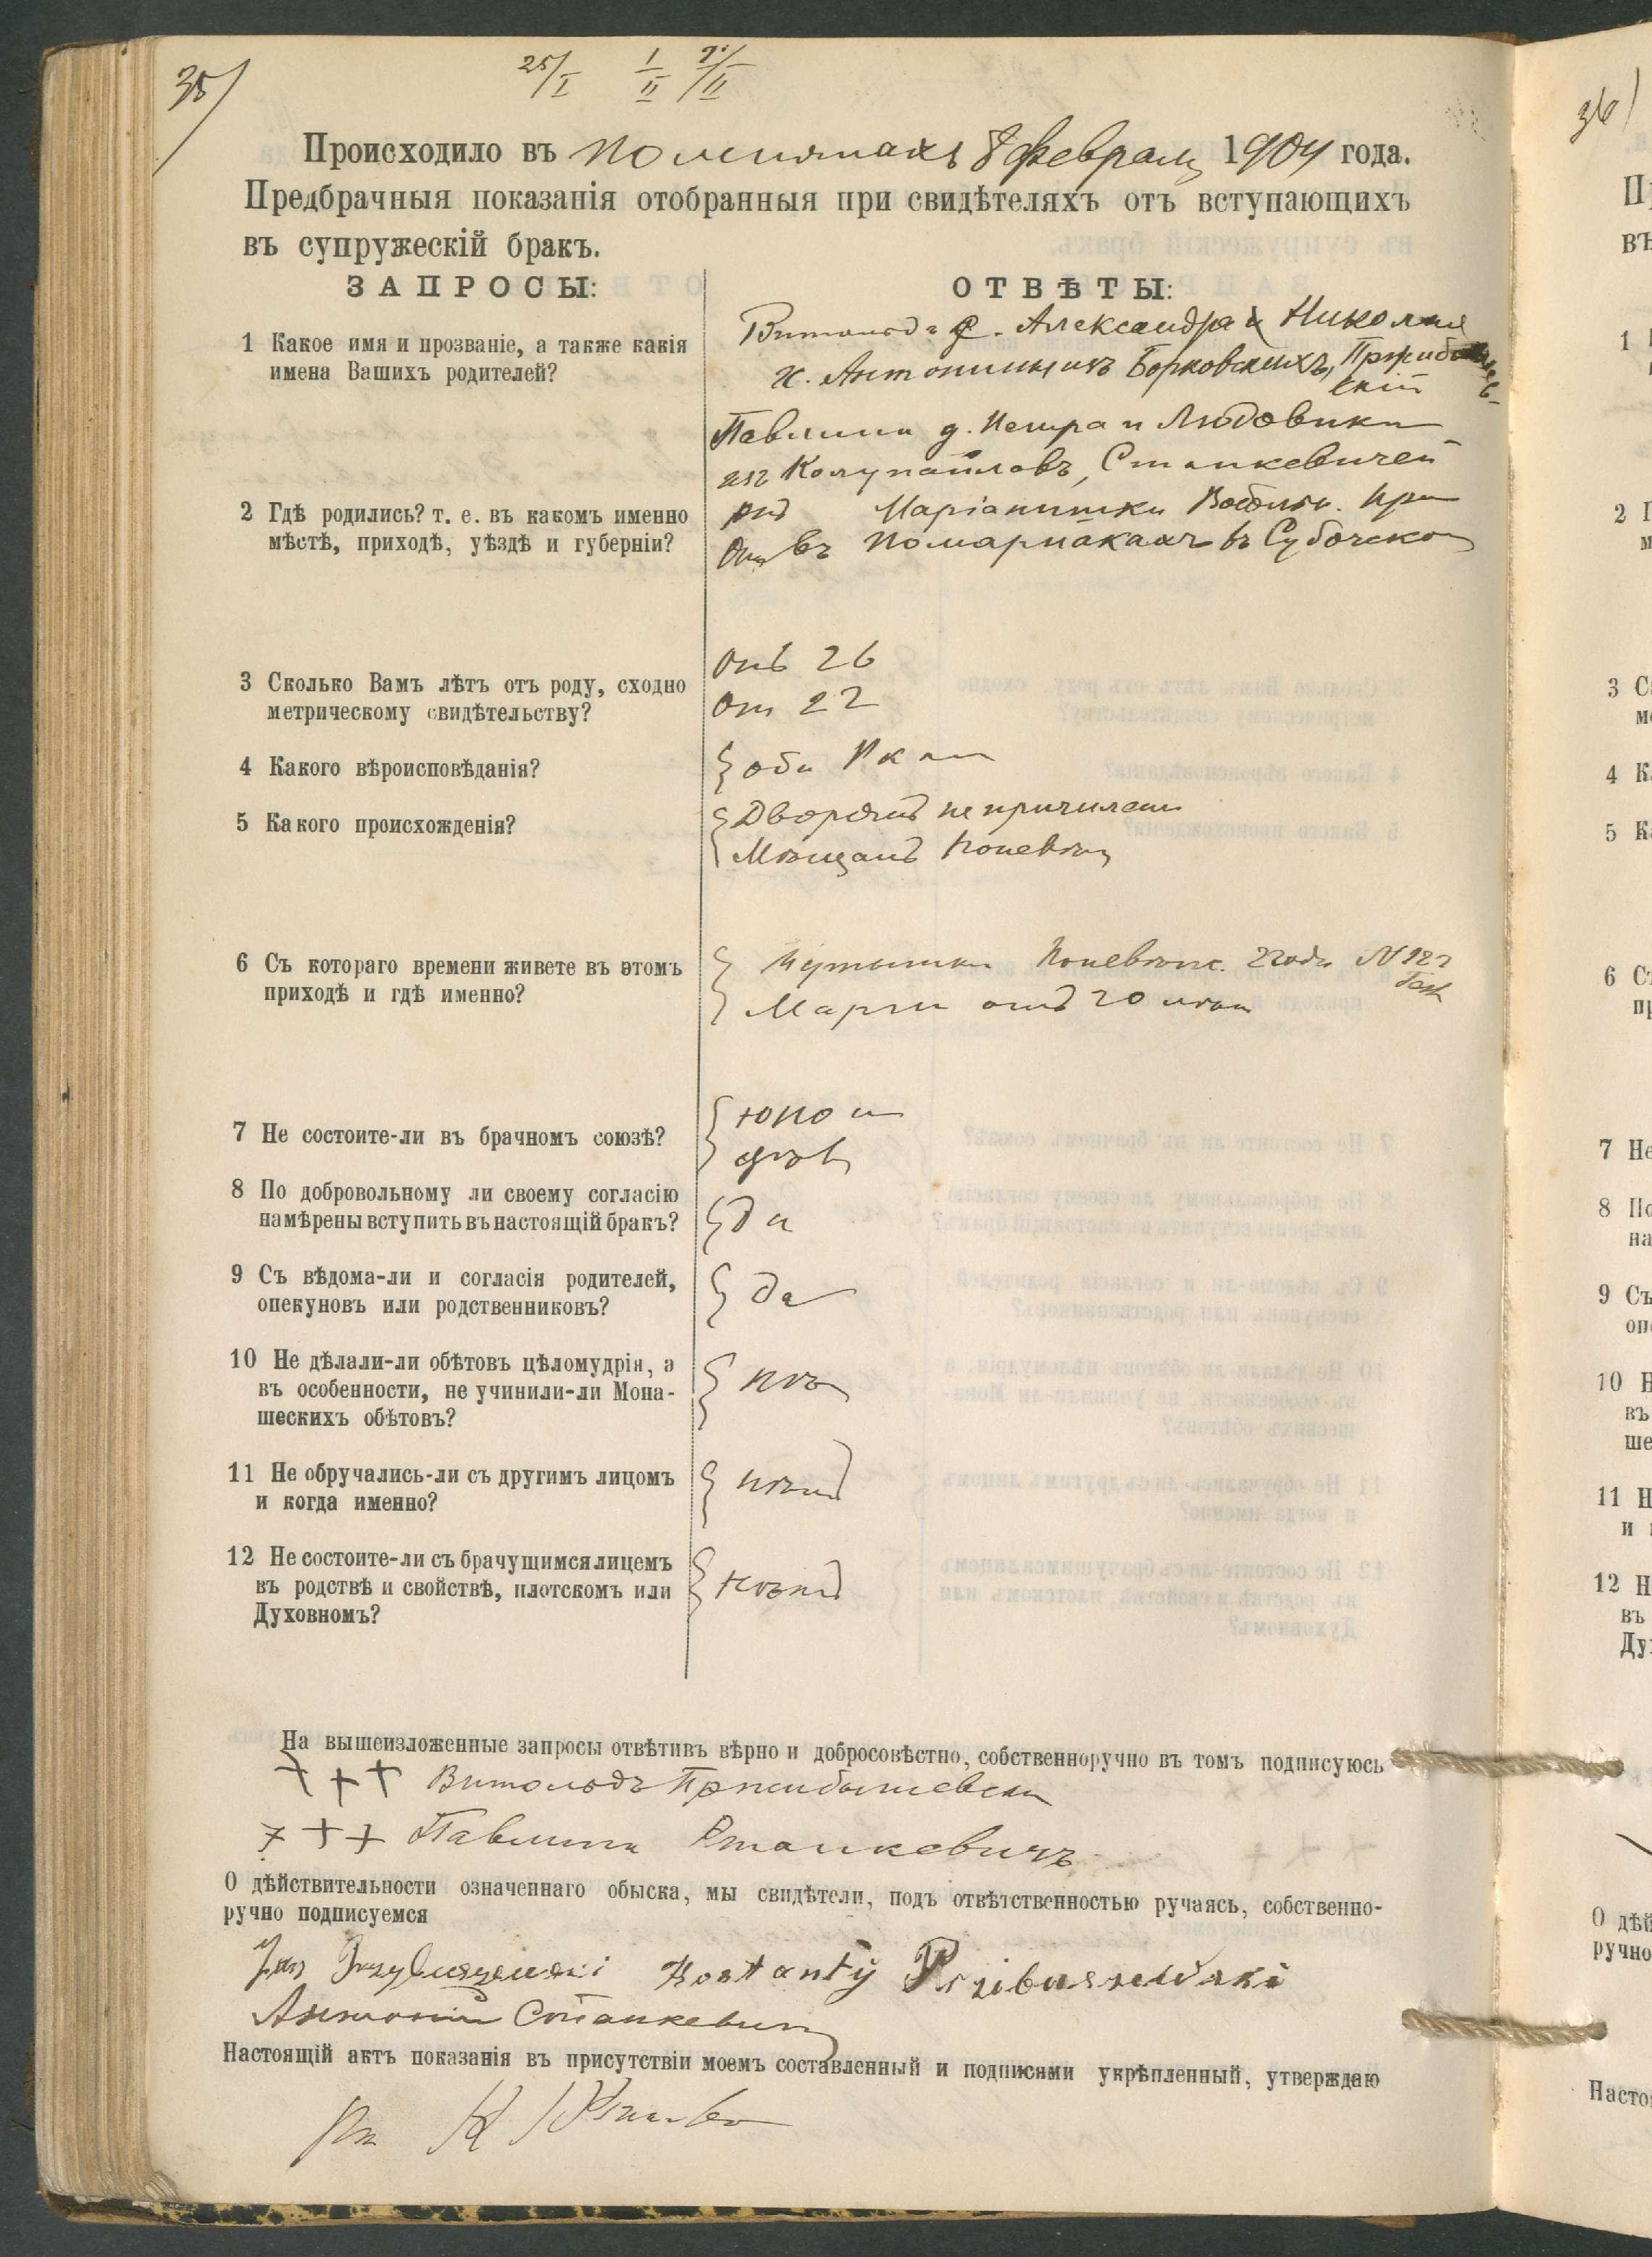 35/
25/I 1/II 7/II
Происходило въ 8 февраля 1904 года.
Предбрачныя показанія отобранныя при свидѣтеляхъ отъ вступающихъ
въ супружескій бракъ.
ЗАПРОСЫ:
ОТВѢТЫ:
1 Какое имя и прозваніе, а также какія
имена Вашихъ родителей?
Витольдъ с. Александра и Николая
и Антонины изъ Борковскихъ,
скій
Павлина д. Петра и Людовики
изъ Колупайловъ, Станкевичей
2 Гдѣ родились? т. е. въ какомъ именно
мѣстѣ, приходѣ, уѣздѣ и губерніи?
род Маріанишки
Она въ въ Субочско
3 Сколько Вамъ лѣтъ отъ роду, сходно
метрическому свидѣтельству?
Онъ 26
Она 22
4 Какого вѣроисповѣданія?
оба Рк
5 Какого происхожденія?
Дворянъ не причислен
Мѣщанъ Поневѣж
6 Съ котораго времени живете въ этомъ
приходѣ и гдѣ именно?
Поневѣж. 2 года №
отъ 20 лѣтъ
7 Не состоите-ли въ брачномъ союзѣ?
юнош
дѣв
8 По добровольному ли своему согласію
намѣрены вступить въ настоящій бракъ?
да
9 Съ вѣдома-ли и согласія родителей,
опекуновъ или родственниковъ?
да
10 Не дѣлали-ли обѣтовъ цѣломудрія, а
въ особенности, не учинили-ли Мона-
шескихъ обѣтовъ?
нѣ
11 Не обручались-ли съ другимъ лицомъ
и когда именно?
нѣтъ
12 Не состоите-ли съ брачущимся лицемъ
въ родствѣ и свойствѣ, плотскомъ или
Духовномъ?
нѣтъ
На вышеизложенные запросы отвѣтивъ вѣрно и добросовѣстно, собственноручно въ томъ подписуюсь
+++ Витольдъ Пржибышевски
+++ Павлина Станкевичъ
О дѣйствительности означеннаго обыска, мы свидѣтели, подъ отвѣтственностью ручаясь, собственно-
ручно подписуемся
Jan Przybuszewski Kostantÿ Przibuszewski
Антоній Станкевичъ
Настоящій актъ показанія въ присутствіи моемъ составленный и подписями укрѣпленный, утверждаю
36/